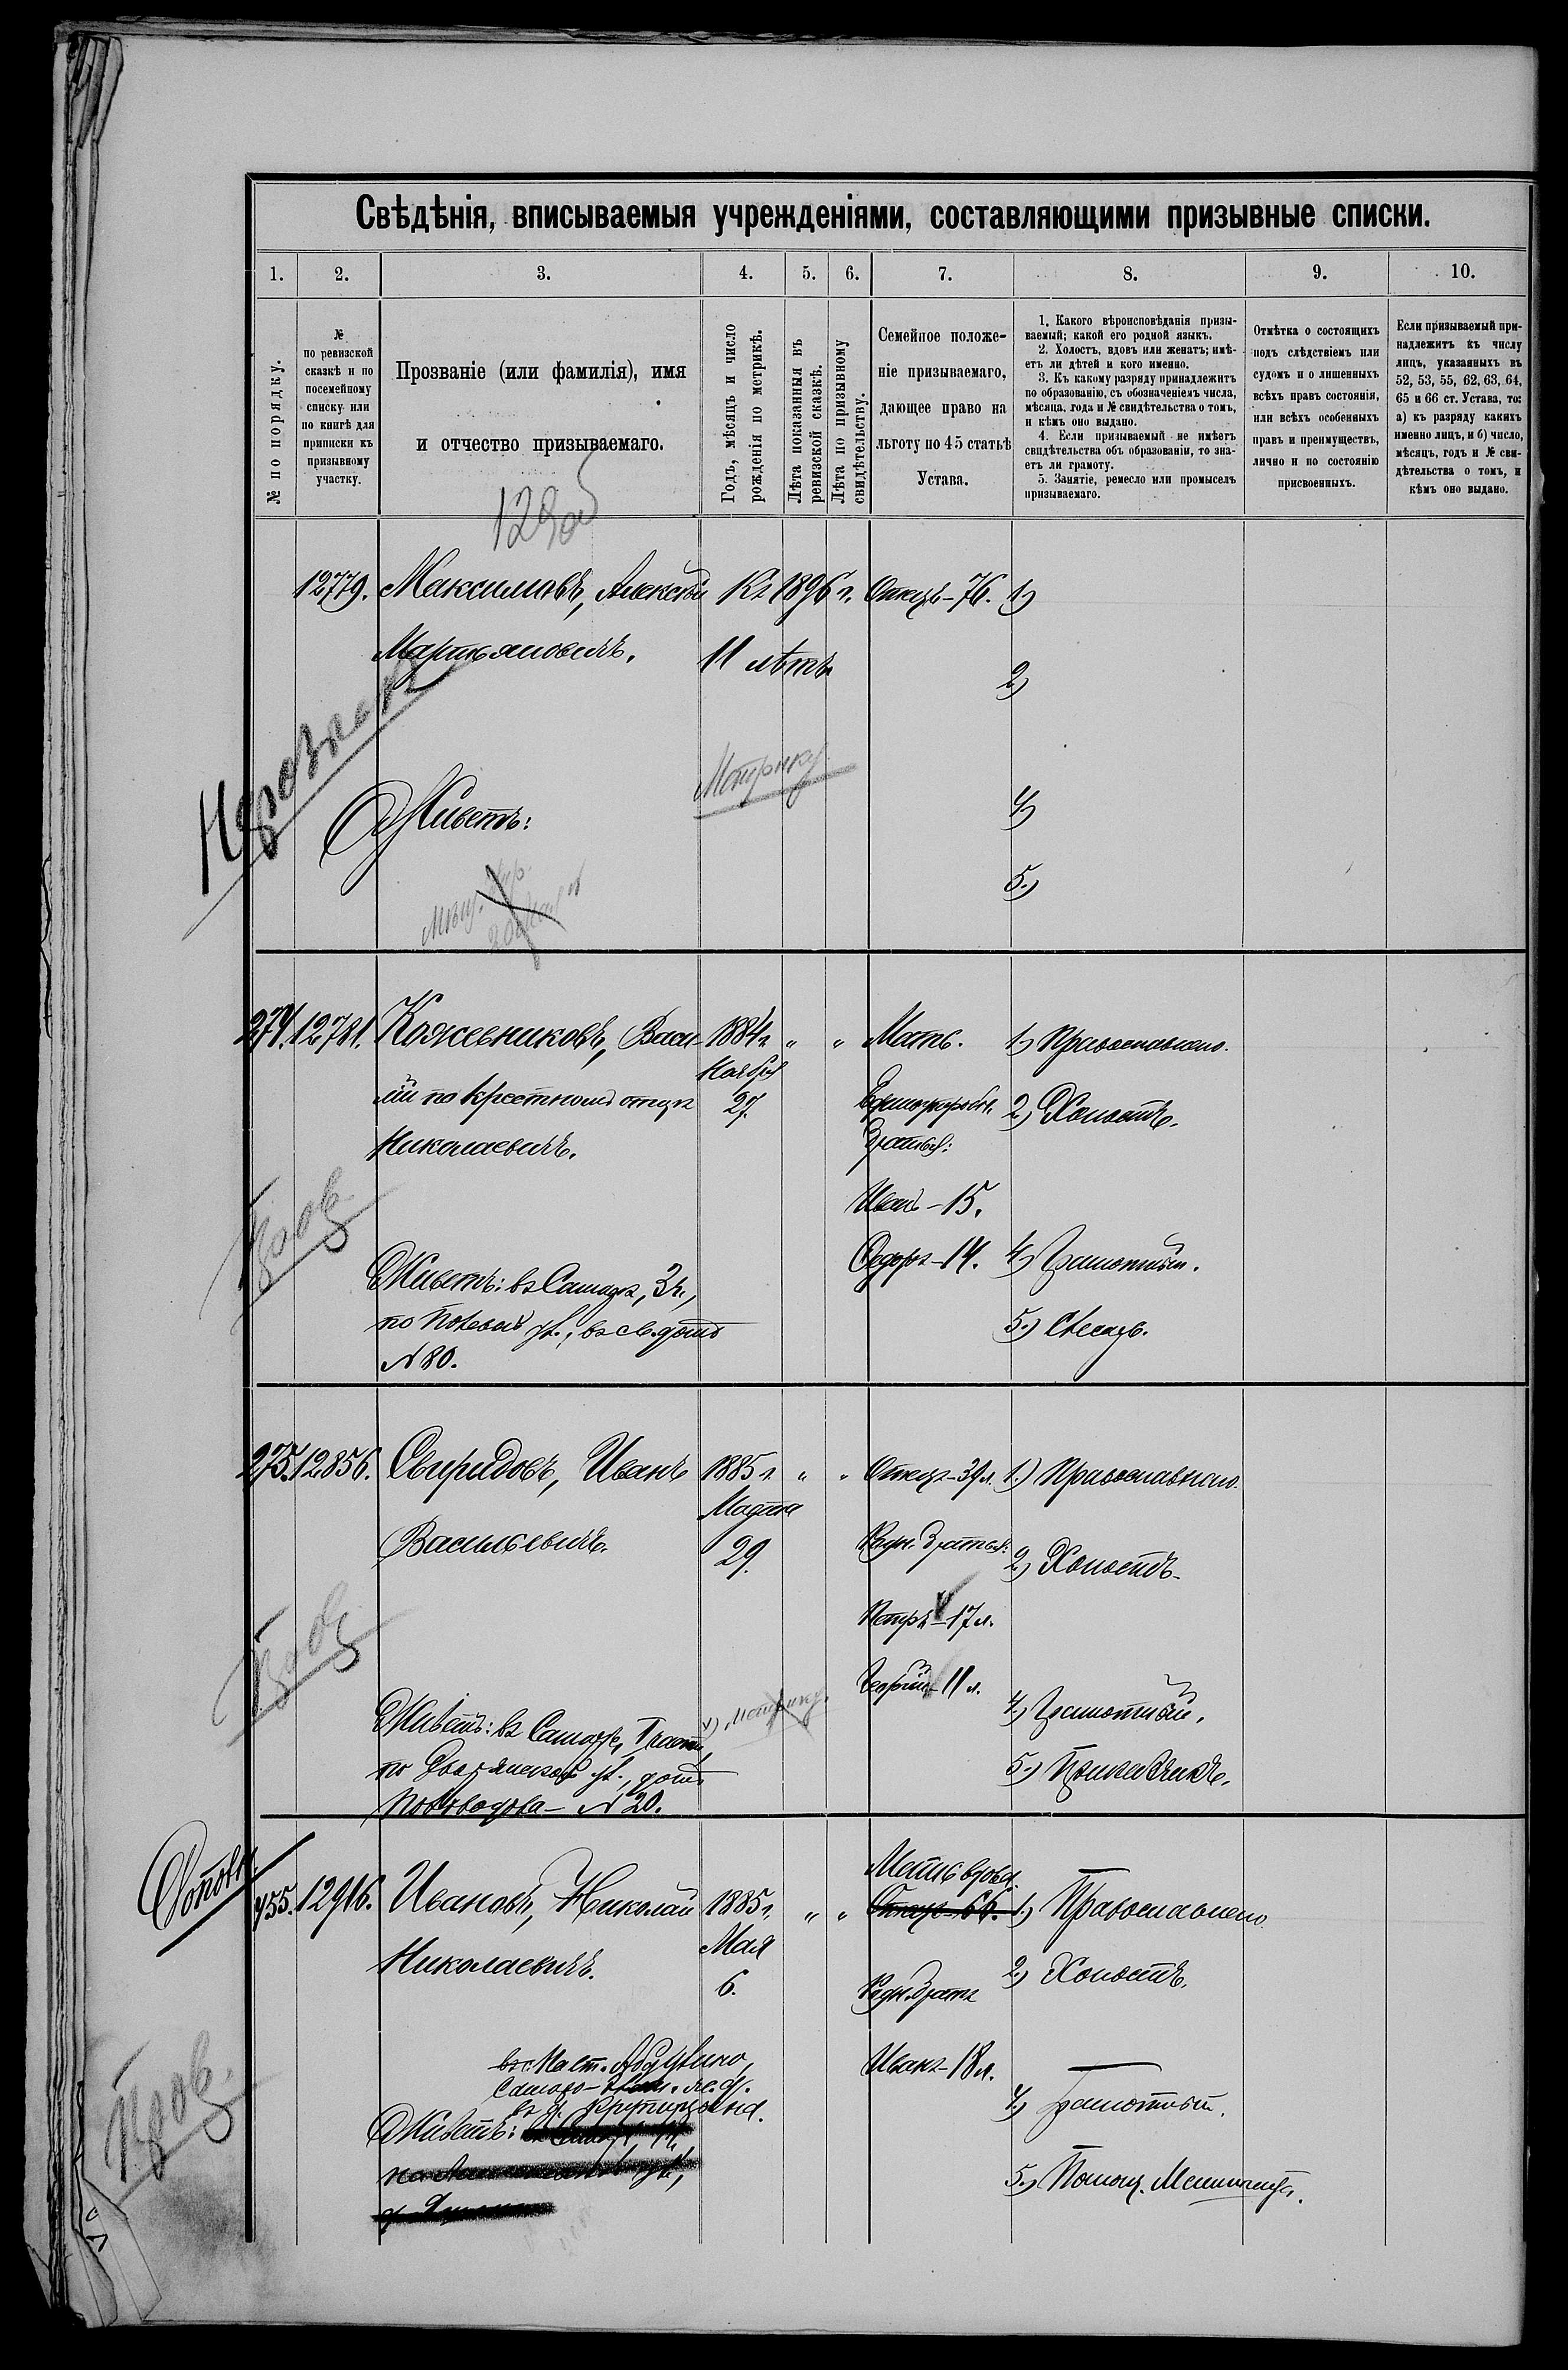 Свѣдѣнія, вписываемыя учрежденіями, составляющими призывные списки.
1. 2. 3. 4. 5. 6. 7. 8. 9. 10.
№ по порядку.
№
по ревизской
сказкѣ и по
посемейному
списку или
по книгѣ для
приписки къ
призывному
участку.
Прозваніе (или фамилія), имя
и отчество призываемаго.
Годъ, мѣсяцъ и число
рожденія по метрикѣ.
Лѣта показанныя въ
ревизской сказкѣ.
Лѣта по призывному
свидѣтельству.
Семейное положе-
ніе призываемаго,
дающее право на
льготу по 45 статьѣ
Устава.
1. Какого вѣроисповѣданія призы-
ваемый; какой его родной языкъ.
2. Холостъ, вдовъ или женатъ; имѣ-
етъ ли дѣтей и кого именно.
3. Къ какому разряду принадлежитъ
по образованію, съ обозначеніемъ числа,
мѣсяца, года и № свидѣтельства о томъ,
и кѣмъ оно выдано.
4. Если призываемый не имѣетъ
свидѣтельства объ образованіи, то зна-
етъ ли грамоту.
5. Занятіе, ремесло или промыселъ
призываемаго.
Отмѣтка о состоящихъ
подъ слѣдствіемъ или
судомъ и о лишенныхъ
всѣхъ правъ состоянія,
или всѣхъ особенныхъ
правъ и преимуществъ,
лично и по состоянію
присвоенныхъ.
Если призываемый при-
надлежитъ къ числу
лицъ, указанныхъ въ
52, 53, 55, 62, 63, 64,
65 и 66 ст. Устава, то:
а) къ разряду какихъ
именно лицъ, и б) число,
мѣсяцъ, годъ и № сви-
дѣтельства о томъ, и
кѣмъ оно выдано.
12779. Максимовъ, Алексѣй Къ 1896 г. Отецъ-76. 1)
Мартьяновичъ. 11 лѣтъ
2)
Метрику
Живетъ: 4)
5.)
274. 12781. Кожевниковъ, Васи- 1884 г. " " Мать. 1) Православнаго.
лій по крестному отцу Ноября 27. Единоутробн. 2) Холостъ.
Николаевичъ. Братья:
Иванъ-15.
Пров.
Федоръ-14. 4) Грамотный.
Живетъ: въ Самарѣ, 3ч.,
по Полевой ул., въ св. домѣ 5.) Слесарь.
№ 80.
275. 12856. Свиридовъ, Иванъ 1885 г. " " Отецъ-39 л. 1.) Православнаго.
Марта
Васильевичъ. 29. Родн. Братья: 2.) Холостъ.
Петръ-17 л.
Пров.
Георгій-11 л.
Метрику
4.) Грамотный.
Живетъ: въ Самарѣ, 1 части,
по Дворянской ул., домъ 5.) Приказчикъ.
Новоавдова- № 20.
Мать вдова.
455. 12916. Ивановъ, Николай 1885 г. " " Отецъ-66. 1.) Православнаго
Мая
Николаевичъ. 6. 2.) Холостъ.
Родн. Братъ
на ст. Абдулино, Иванъ-18 л.
Самаро- ж. д.
4.) Грамотный.
Живетъ:
Пров.
5.) Помощ. Машиниста.